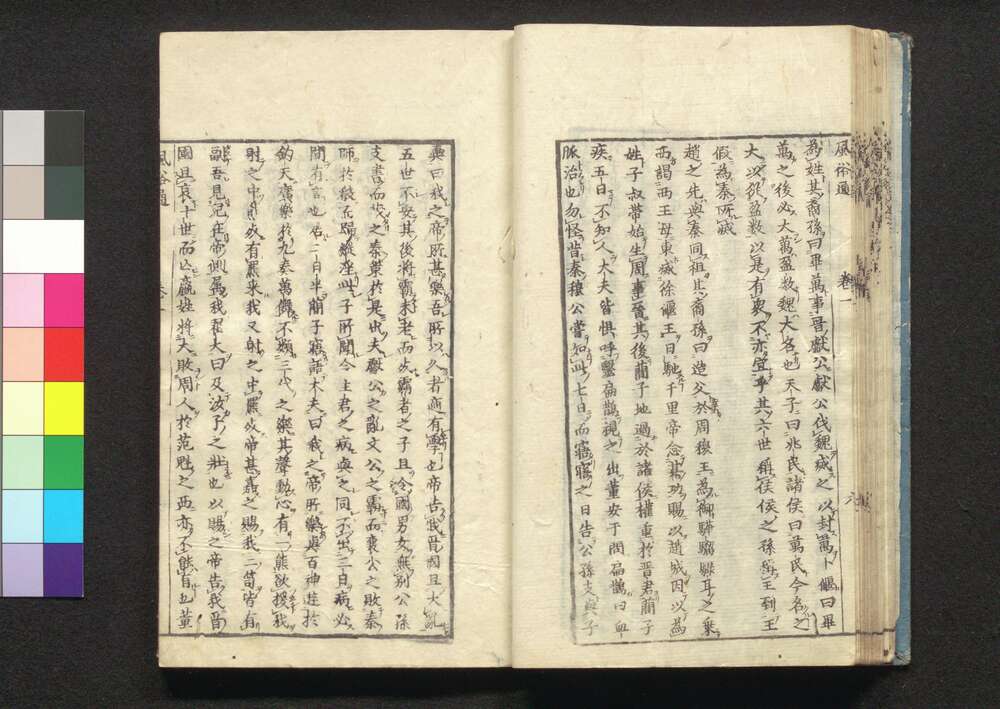 風俗通 卷一
為姓其裔孫曰畢萬事晋獻公獻公伐魏滅之以封萬卜偃曰畢
萬之後必大萬盈數魏大名也天子曰兆民諸侯曰萬民今名之
大以從盈數以是有衆不亦宜乎其六世稱侯侯之孫稱王到王
假為秦所滅
趙之先與秦同祖其裔孫曰造父於周穆王為御驊騮騄耳之乗
西謁西王母東滅徐偃王日馳千里帝念其功賜以趙城因以為
姓子叔帶始生周事晋其後蕳子地過於諸侯權重於晋君蕳子
疾五日不知人大夫皆惧呼毉扁鵲視之出董安于問扁鵲曰血
脈治也勿怪昔秦穆公嘗如此七日而寤寤之日告公孫支與子
輿曰我之帝所甚樂吾所以久者適有學也帝告我晋國且大亂
五世不安其後將霸未老而死霸者之子且令國男女無別公孫
支書而藏之秦策於是出夫獻公之亂文公之霸而襄公之敗秦
師於殽而歸縱淫此子所聞今主君之病與之同不出三日病必
間有言也居二日半簡子寤語大夫曰我之帝所樂與百神遊於
鈞天廣樂於九奏萬儛不類三代之樂其聲動心有一熊欲援我
射之中熊死有羆来我又射之中羆死帝甚喜之賜我二笥皆有
副吾見兒在帝側属我翟犬曰及汝子之壯也以賜之帝告我晋
國且衰十世而亡嬴姓將大敗周人於范魁之西亦不能有也董
風俗通